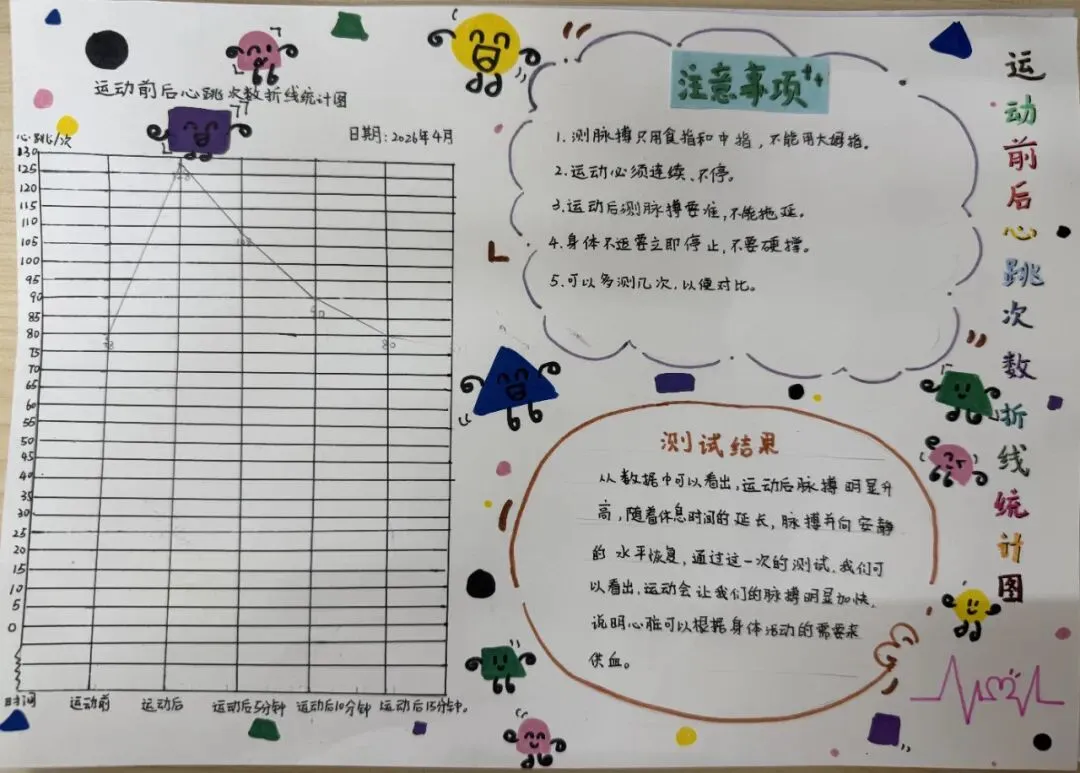 运动前后心跳次数折线统计图
运动前后心跳次数折线统计图
心跳/次
日期:2026年4月
130
125
120
115
110
105
100
95
90
85
80
75
70
65
60
55
50
45
40
35
30
25
20
15
10
5
0
78
128
90
80
时间
运动前
运动后
运动后5分钟
运动后10分钟
运动后15分钟。
注意事项
1.测脉搏只用食指和中指,不能用大拇指。
2.运动必须连续、不停。
3.运动后测脉搏要准,不能拖延。
4.身体不适要立即停止,不要硬撑。
5.可以多测几次,以便对比。
测试结果
从数据中可以看出,运动后脉搏明显升
高,随着休息时间的延长,脉搏并向安静
的水平恢复,通过这一次的测试,我们可
以看出,运动会让我们的脉搏明显加快,
说明心脏可以根据身体活动的需要来
供血。